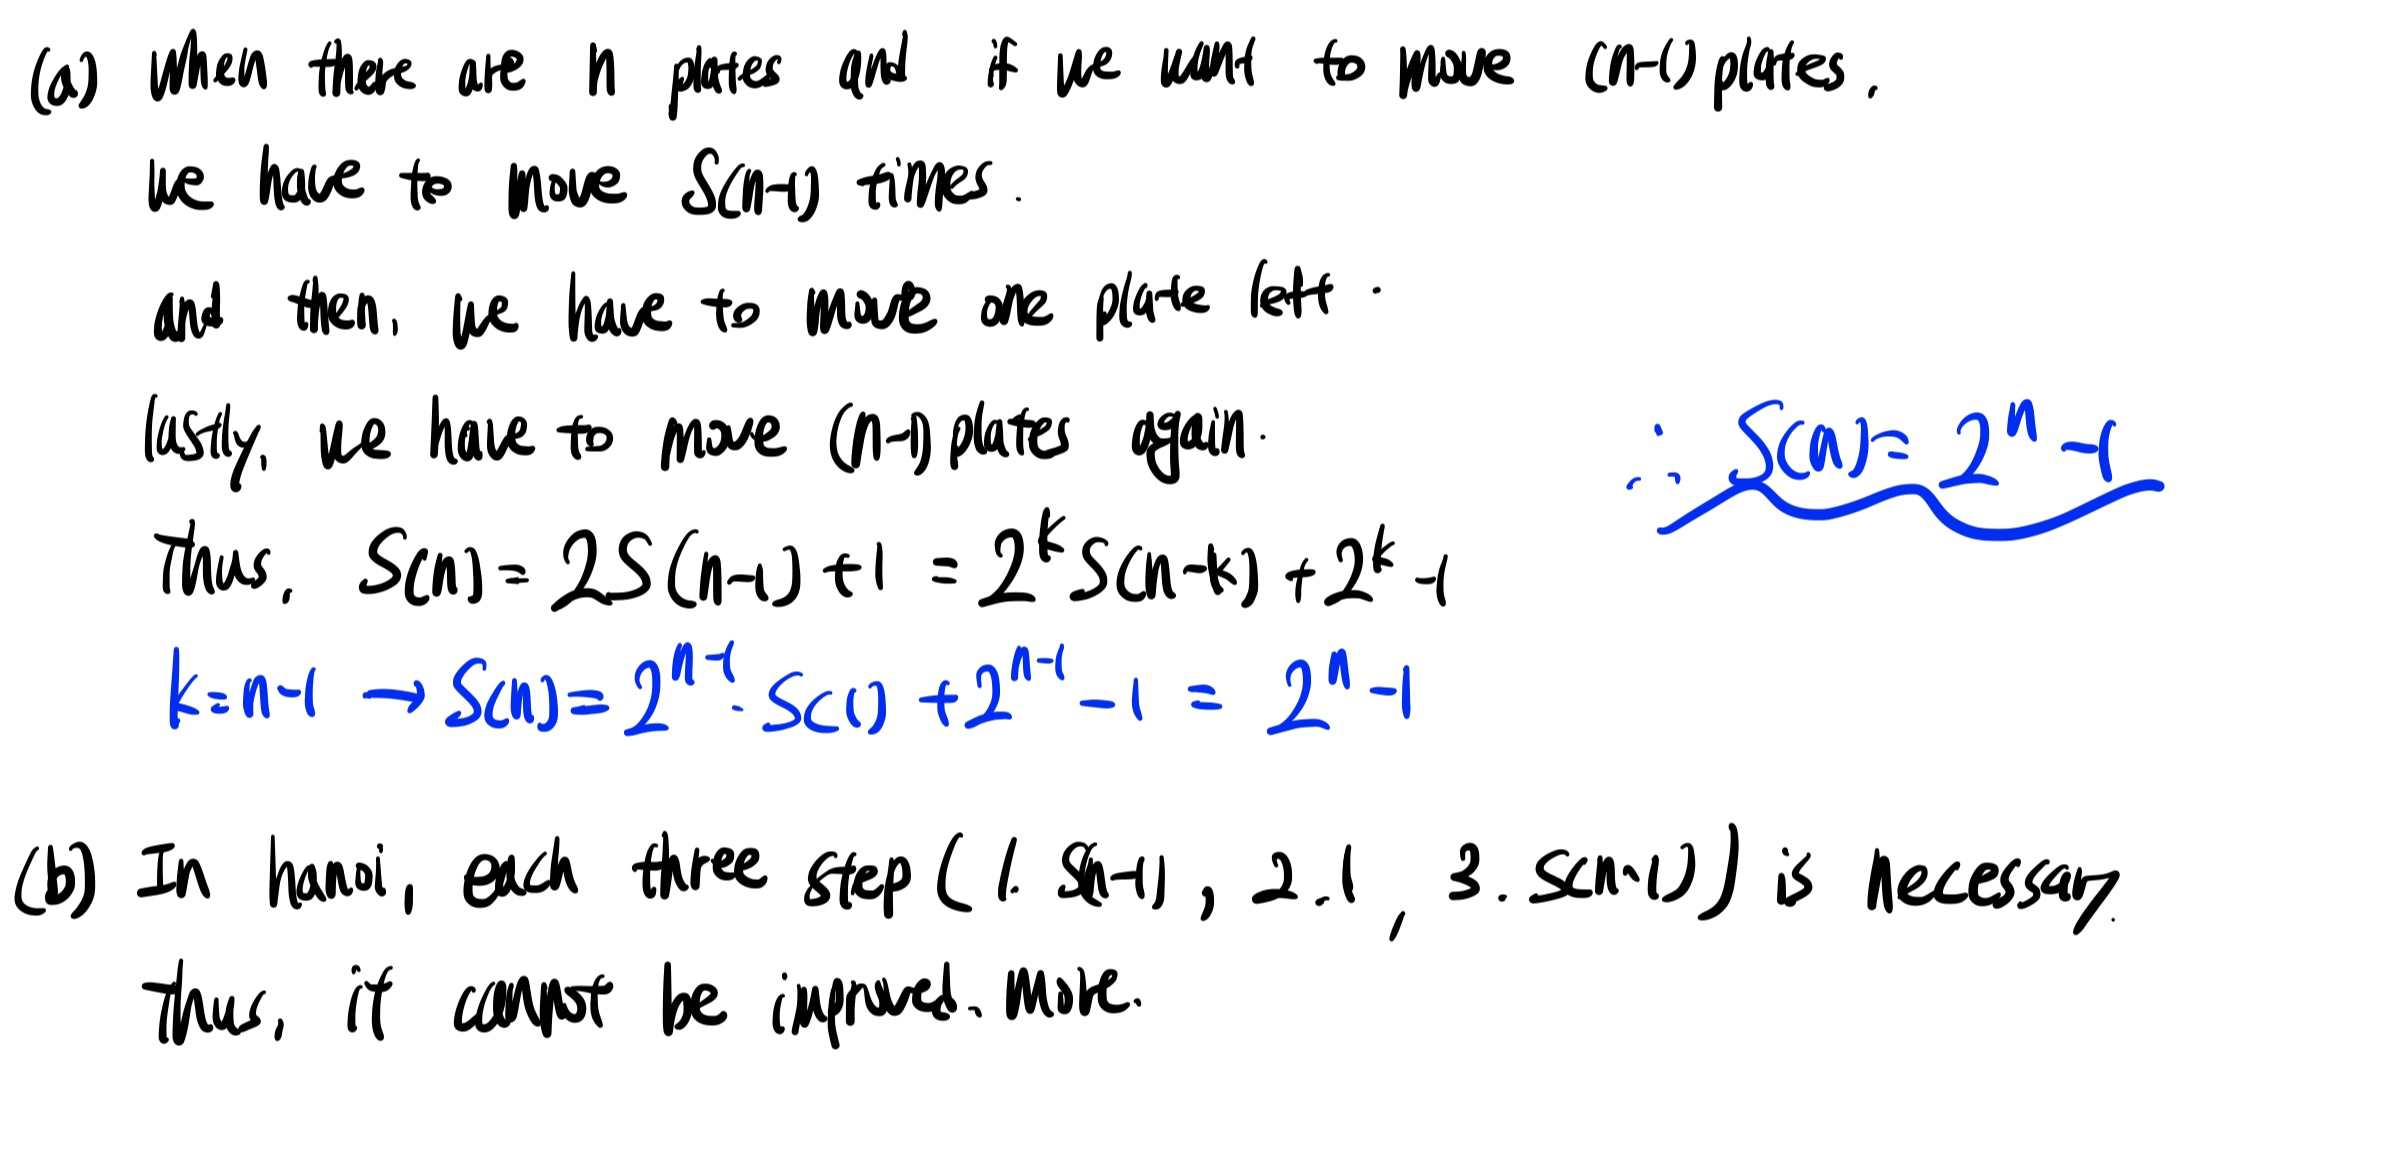 (a) When there are n plates and if we want to move (n-1) plates,
we have to move S(n-1) times.
and then, we have to move one plate left.
lastly, we have to move (n-1) plates again.
∴ S(n) = 2^n - 1
Thus, S(n) = 2S(n-1) + 1 = 2^k S(n-k) + 2^k - 1
k=n-1 → S(n) = 2^{n-1} · S(1) + 2^{n-1} - 1 = 2^n - 1
(b) In hanoi, each three step (1. S(n-1), 2. 1, 3. S(n-1)) is necessary.
Thus, it cannot be improved more.